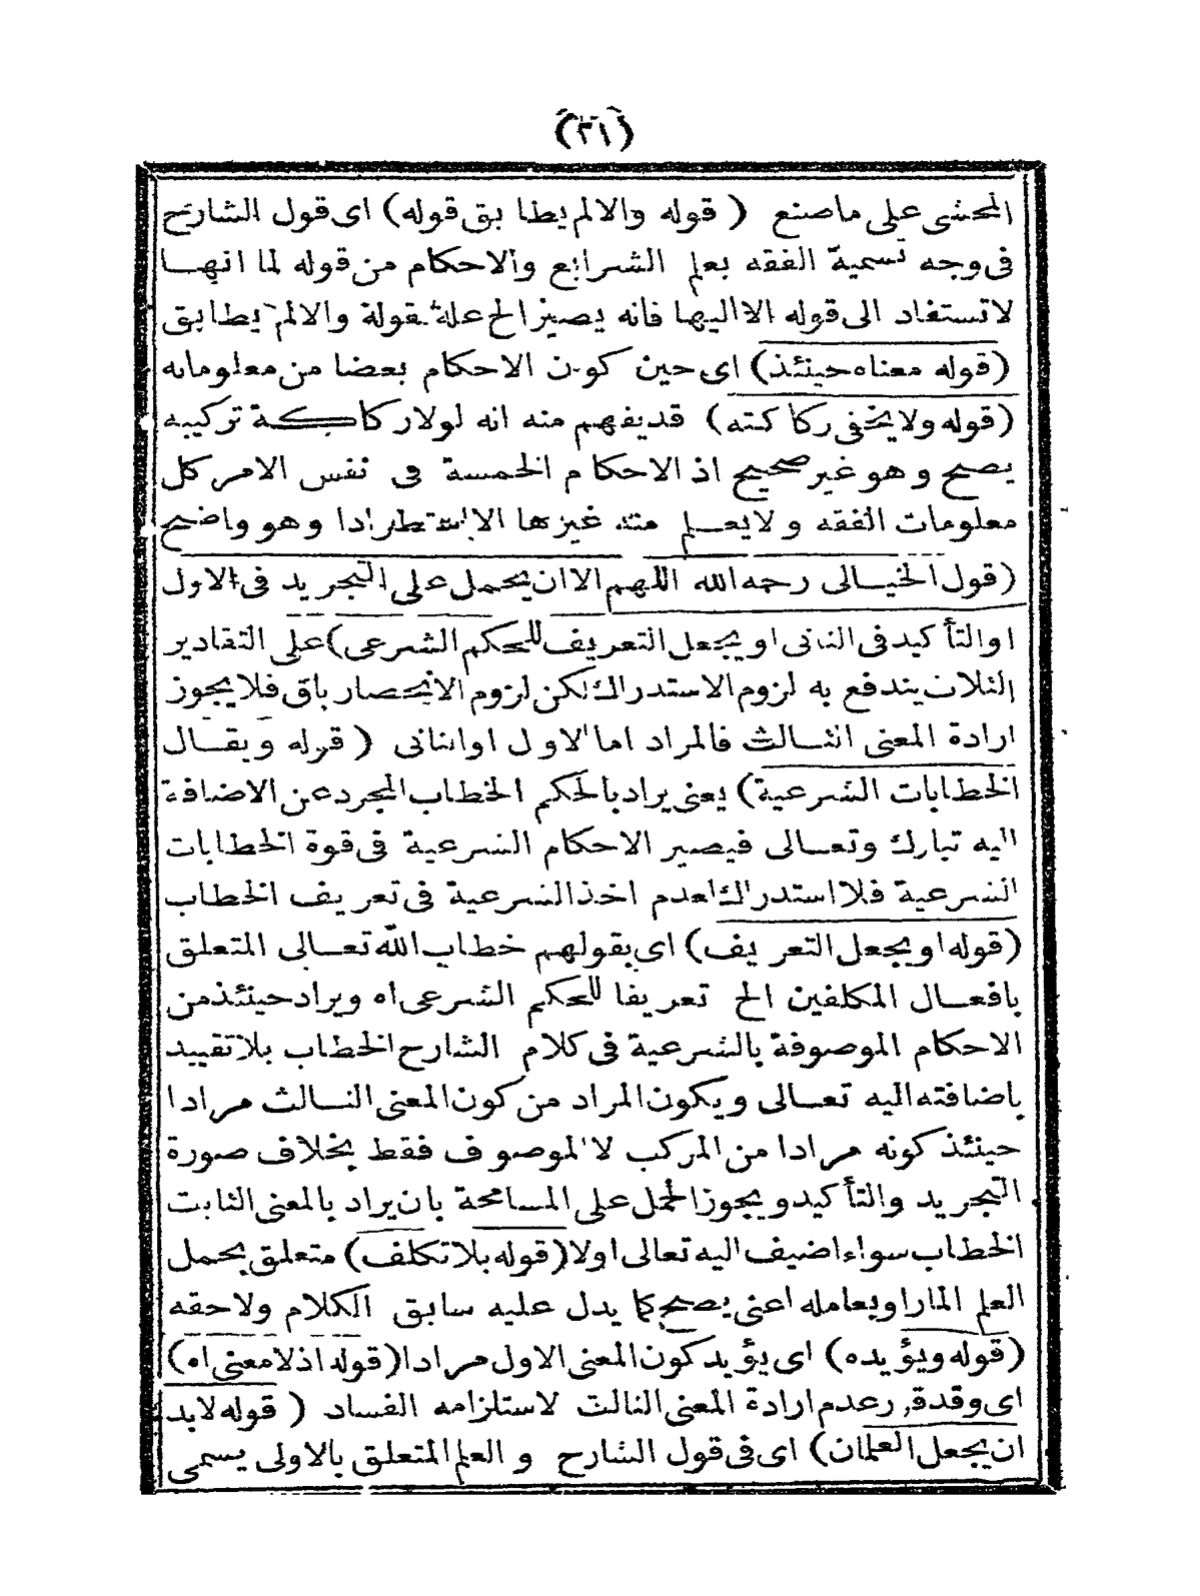 (٣١)
المحشى على ماصنع ( قوله والالم يطابق قوله) اى قول الشارح
فى وجه تسمية الفقه بعلم الشرايع والاحكام من قوله لما انها
لاتستفاد الى قوله الااليها فانه يصير الخ علة لقوله والالم يطابق
(قوله معناه حينئذ) اى حين كون الاحكام بعضا من معلوماته
(قوله ولايخفى ركاكته) قديفهم منه انه لولاركاكة تركيبه
يصح وهو غير صحيح اذ الاحكام الخمسة فى نفس الامر كل
معلومات الفقه ولايعلم منه غيرها الا استطرادا وهو واضح
(قول الخيالى رحمه الله اللهم الاان يحمل على التجريد فى الاول
اوالتأكيد فى الثانى او يجعل التعريف للحكم الشرعى) على التقادير
الثلاث يندفع به لزوم الاستدراك لكن لزوم الانحصار باق فلايجوز
ارادة المعنى الثالث فالمراد اما الاول اوالثانى ( قوله ويقال
الخطابات الشرعية) يعنى يراد بالحكم الخطاب المجرد عن الاضافة
اليه تبارك وتعالى فيصير الاحكام الشرعية فى قوة الخطابات
الشرعية فلا استدراك لعدم اخذ الشرعية فى تعريف الخطاب
(قوله او يجعل التعريف) اى بقولهم خطاب الله تعالى المتعلق
بافعال المكلفين الخ تعريفا للحكم الشرعى اه ويراد حينئذ من
الاحكام الموصوفة بالشرعية فى كلام الشارح الخطاب بلا تقييد
باضافته اليه تعالى ويكون المراد من كون المعنى الثالث مرادا
حينئذ كونه مرادا من المركب لا الموصوف فقط بخلاف صورة
التجريد والتأكيد ويجوز الحمل على المسامحة بان يراد بالمعنى الثابت
الخطاب سواء اضيف اليه تعالى اولا (قوله بلا تكلف) متعلق بحمل
العلم المار او بعامله اعنى يصح كما يدل عليه سابق الكلام ولاحقه
(قوله ويؤيده) اى يؤيد كون المعنى الاول مرادا (قوله اذ لامعنى اه)
اى وقد قرر عدم ارادة المعنى الثالث لاستلزامه الفساد ( قوله لابد
ان يجعل العلمان) اى فى قول الشارح والعلم المتعلق بالاولى يسمى